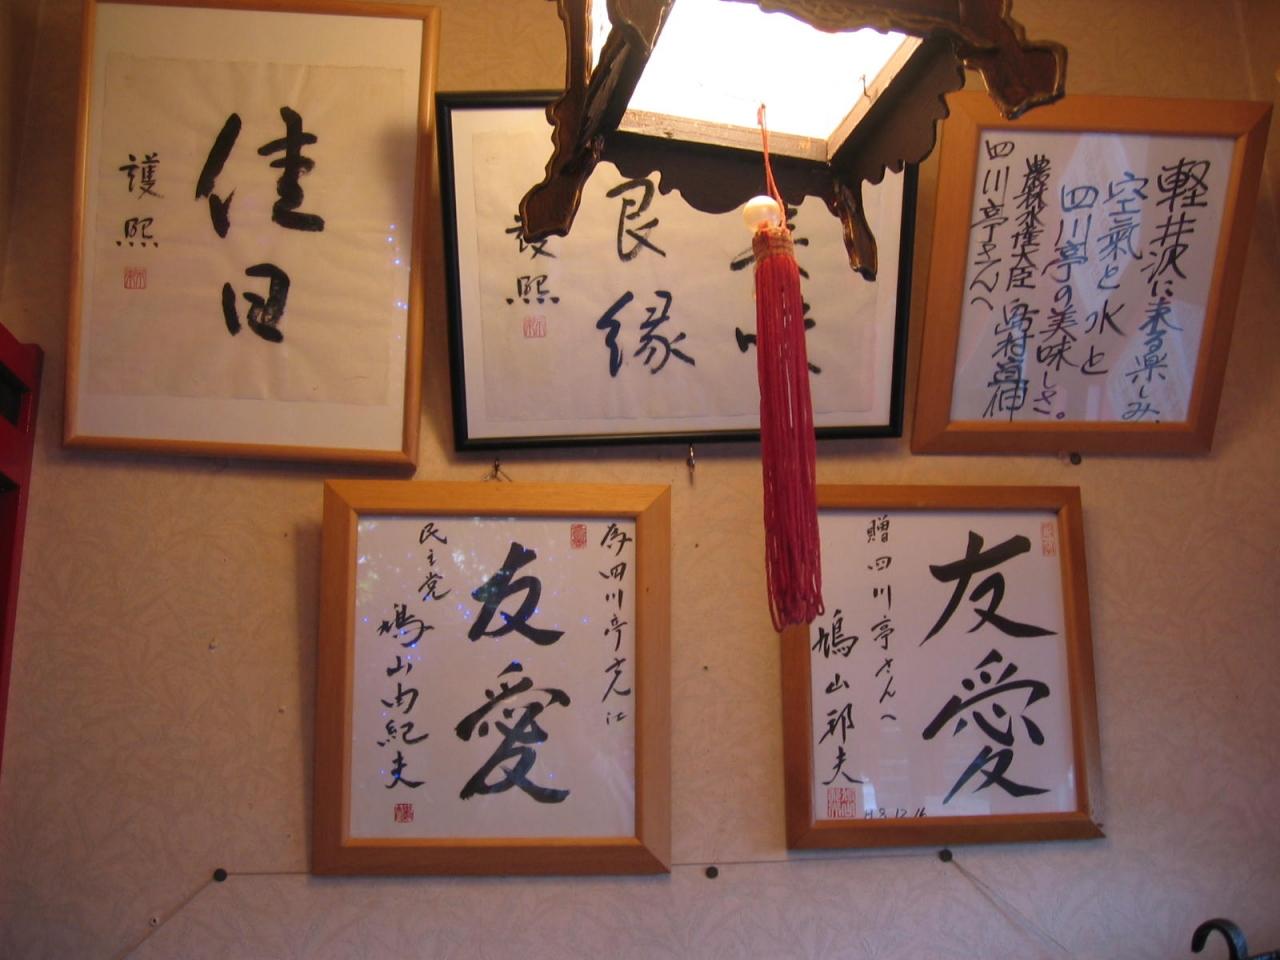 佳日
護熙
美味
良縁
護熙
軽井沢に来る楽しみ、
空氣と水と
四川亭の美味しさ。
農林水産大臣 島村宜伸
四川亭さんへ
為四川亭さん江
友愛
民主党
鳩山由紀夫
友愛
贈四川亭さんへ
鳩山邦夫
H8.12.16